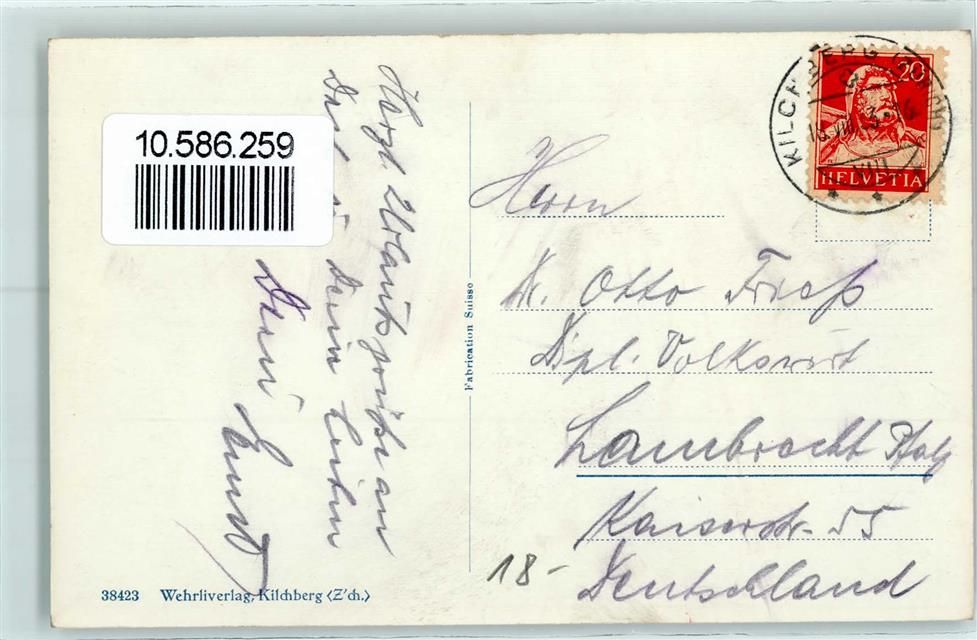 10.586.259
Herzl. Urlaubsgrüße an
Dich u. Deine Lieben
Dein Ernst
Fabrication Suisse
KILCHBERG (ZÜRICH)
20
HELVETIA
Herrn
Dr. Otto Freß
Dipl. Volkswirt
Lambrecht Pfalz
Kaiserstr. 55
Deutschland
18-
38423 Wehrliverlag, Kilchberg (Z'ch.)